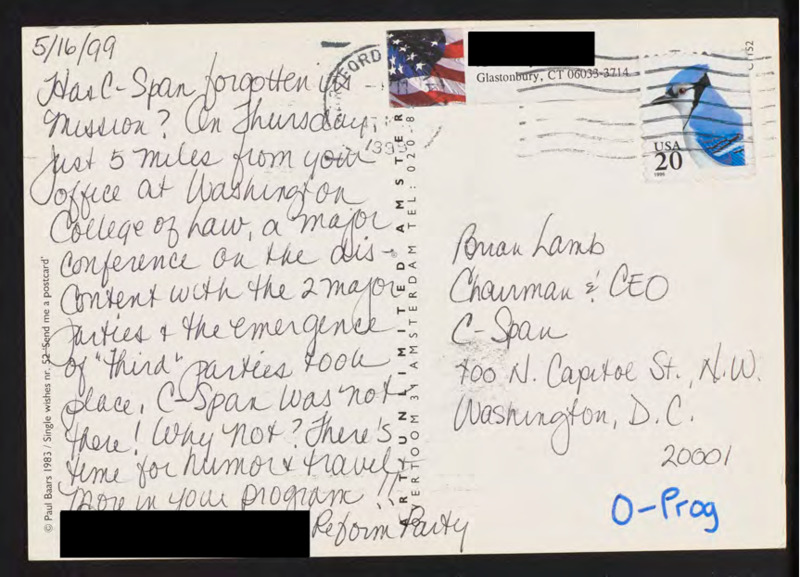 5/16/99
Has C-Span forgotten its
mission? On Thursday,
just 5 miles from your
office at Washington
College of Law, a major
conference on the dis-
content with the 2 major
parties & the emergence
of "third" parties took
place. C-Span was not
there! Why not? There's
time for humor & travel &
more in your program!!
Reform Party
© Paul Baars 1983 / Single wishes nr. 52 'Send me a postcard'
ART UNLIMITED AMSTER
AMSTERDAM TEL: 020-8
FORD
1999
Glastonbury, CT 06033-3714
USA
20
Brian Lamb
Chairman & CEO
C-Span
400 N. Capitol St., N.W.
Washington, D.C.
20001
O-Prog